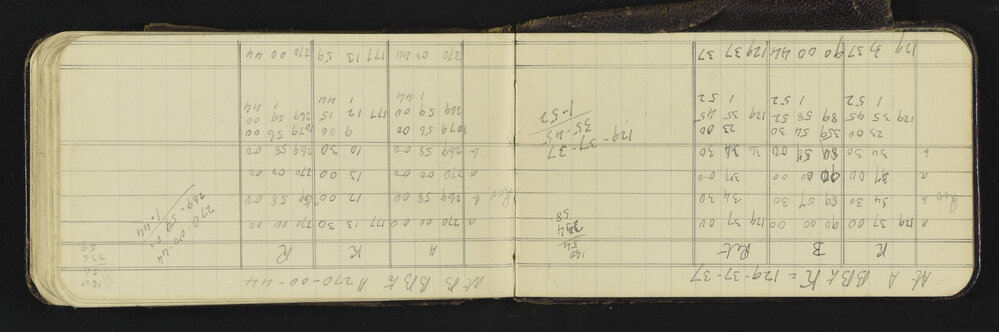 At A BB to K = 129-37-37
K B Ref
a 129 37 00 90 00 00 129 37 00
b 34 30 89 57 30 34 30
Rev
a 37 00 90 00 00 37 00
b 34 30 36 30
23 00 359 54 30 23 00
129 35 45 89 58 52 129 35 45
1 52 1 52 1 52
129 37 37 90 00 44 129 37 37
180
54
234
58
129-37-37
35-45
1-52
At B BB to A 270-00-44
A K R
a 270 00 00 177 13 30 270 00 00
b 269 58 00 12 00 269 58 00
Rev
a 270 00 00 13 00 270 00 00
b 269 58 00 10 30 269 58 00
1079 56 00 9 00 1079 56 00
269 59 00 177 12 15 269 59 00
1 44 1 44 1 44
270 00 44 177 13 59 270 00 44
180
56
236
59
270-00-44
269-59-00
1-44